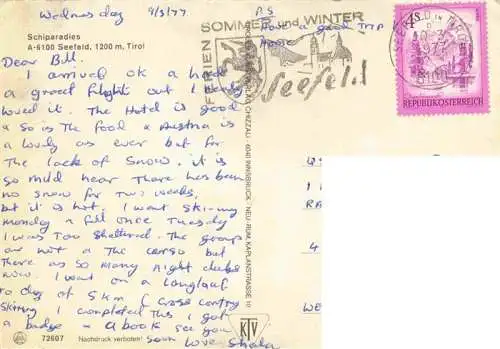 Wednesday 9/3/77
P.S
Have a good trip
Home
Schiparadies
A-6100 Seefeld, 1200 m, Tirol
Dear Bill.
I arrived ok & had
a great flight out I really
loved it. The Hotel is good
& so is the food & Austria is
a lovely as ever but for
the lack of snow. it is
so mild hear there has been
no snow for two weeks,
but it is hot. I went Skiing
monday & fell once Tuesday
I was too Shattered. The group
are not & The
there as so many night clubs
now. I went on a Langlauf
to day of 5 km (Cross contry
Skiing I completed this I got
a badge & a book see you
Soon Love Sheila
72607 Nachdruck verboten!
FERIEN
SOMMER und WINTER
Seefeld
CHIZZALI · 6040 INNSBRUCK · NEU-RUM, KAPLANSTRASSE 10
KTV
4 S
REPUBLIK ÖSTERREICH
6100
RA
4
WE